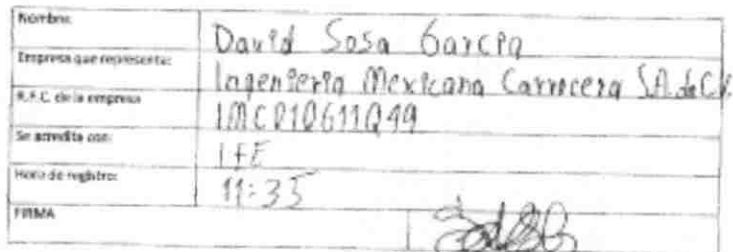 Nombre: David Sosa Garcia
Empresa que representa: Ingenieria Mexicana Carrocera S.A. de C.V.
R.F.C. de la empresa
Se acredita con: IFE
Hora de registro: 11:35
FIRMA